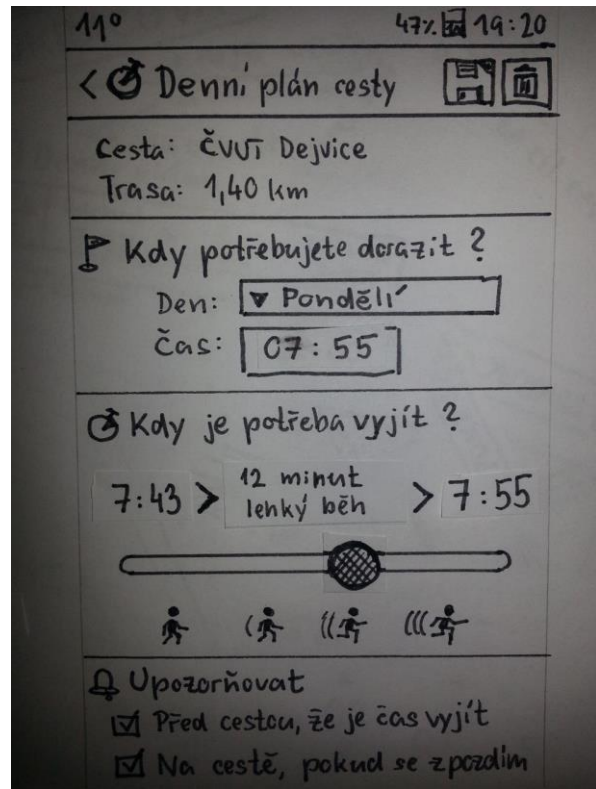 11° 47% 19:20
< Denní plán cesty
Cesta: ČVUT Dejvice
Trasa: 1,40 km
Kdy potřebujete dorazit?
Den: ▼ Pondělí
Čas: 07:55
Kdy je potřeba vyjít?
7:43 > 12 minut lehký běh > 7:55
Upozorňovat
Před cestou, že je čas vyjít
Na cestě, pokud se zpozdím